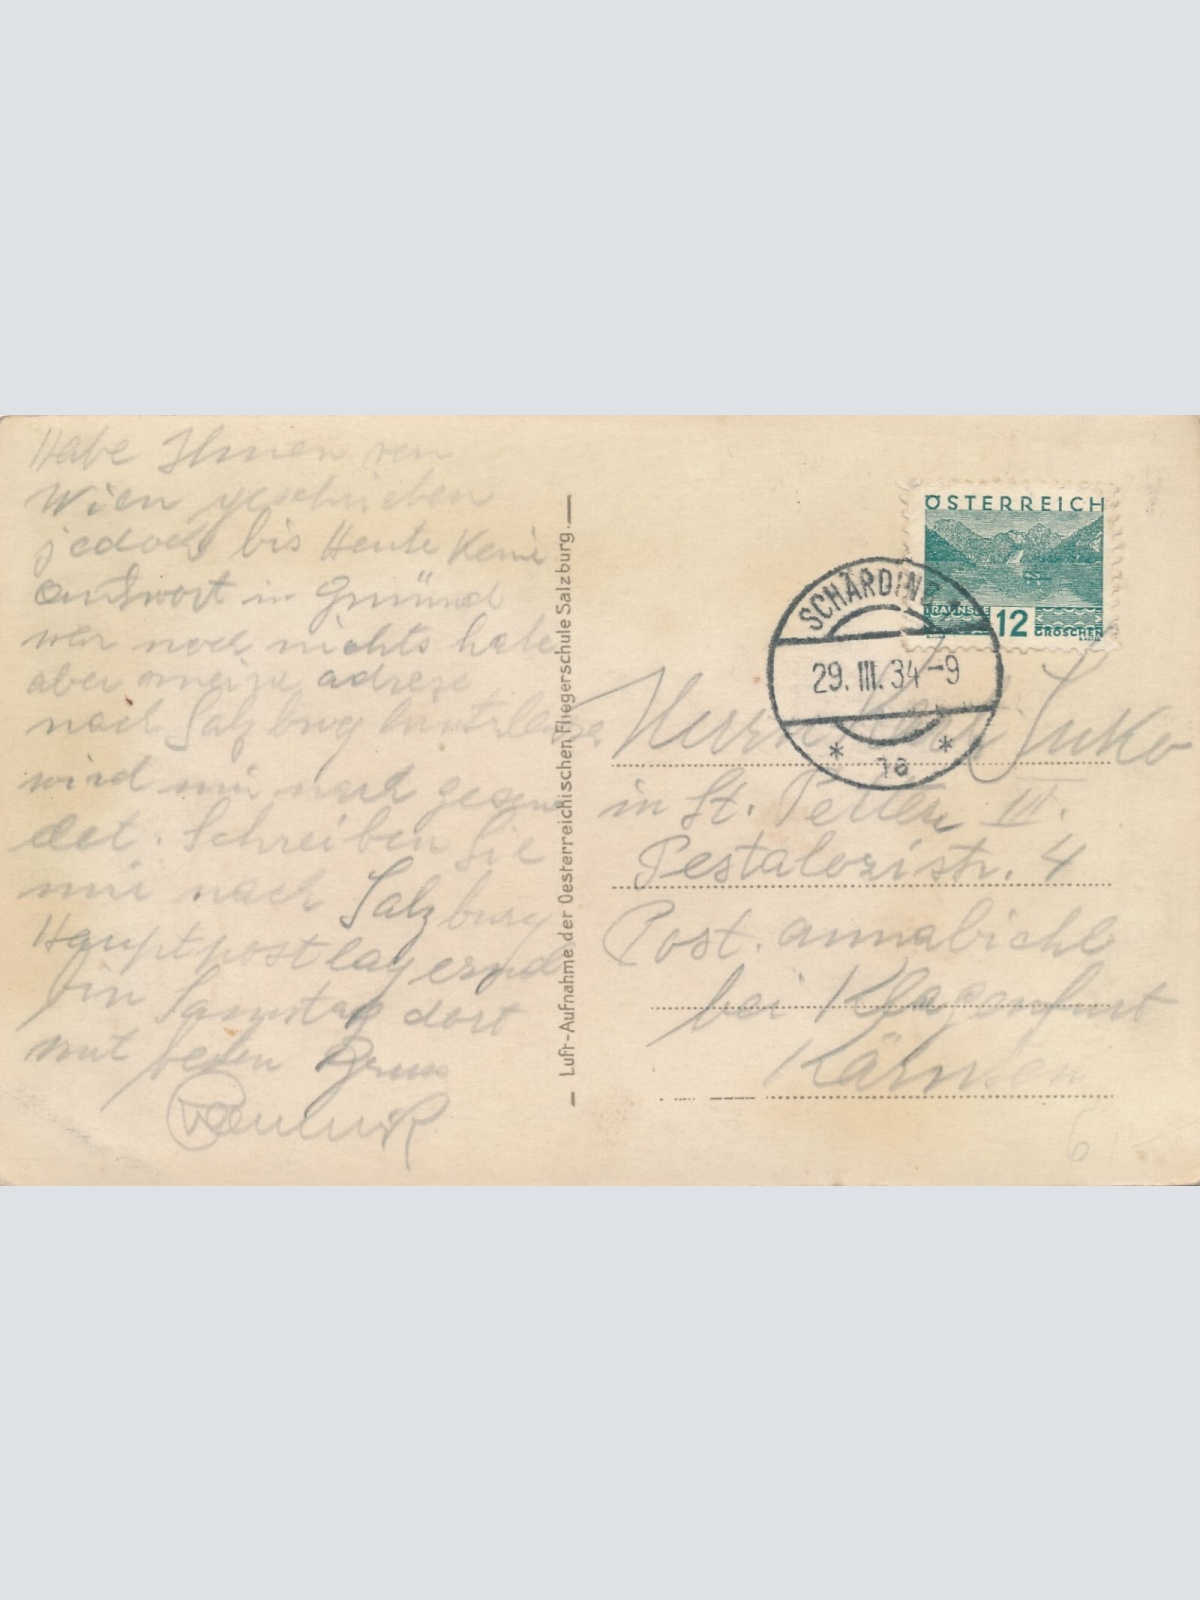 Habe Ihnen von
Wien geschrieben
jedoch bis Heute Keine
antwort in Gmünd
war noch nichts habe
aber meine adrese
nach Salzburg hinterlassen
wird mir nach gesen
det. Schreiben Sie
mir nach Salzburg
Hauptpostlagernd
bin Samstag dort
mit besten Gruss
Luft-Aufnahme der Oesterreichischen Fliegerschule Salzburg.
ÖSTERREICH
TRAUNSEE 12 GROSCHEN
SCHÄRDING
29. III. 34-9
* 1a *
Herrn Karl
in St. Petten III.
Pestalozistr. 4
Post. annabichl
bei Klagenfurt
Kärnten